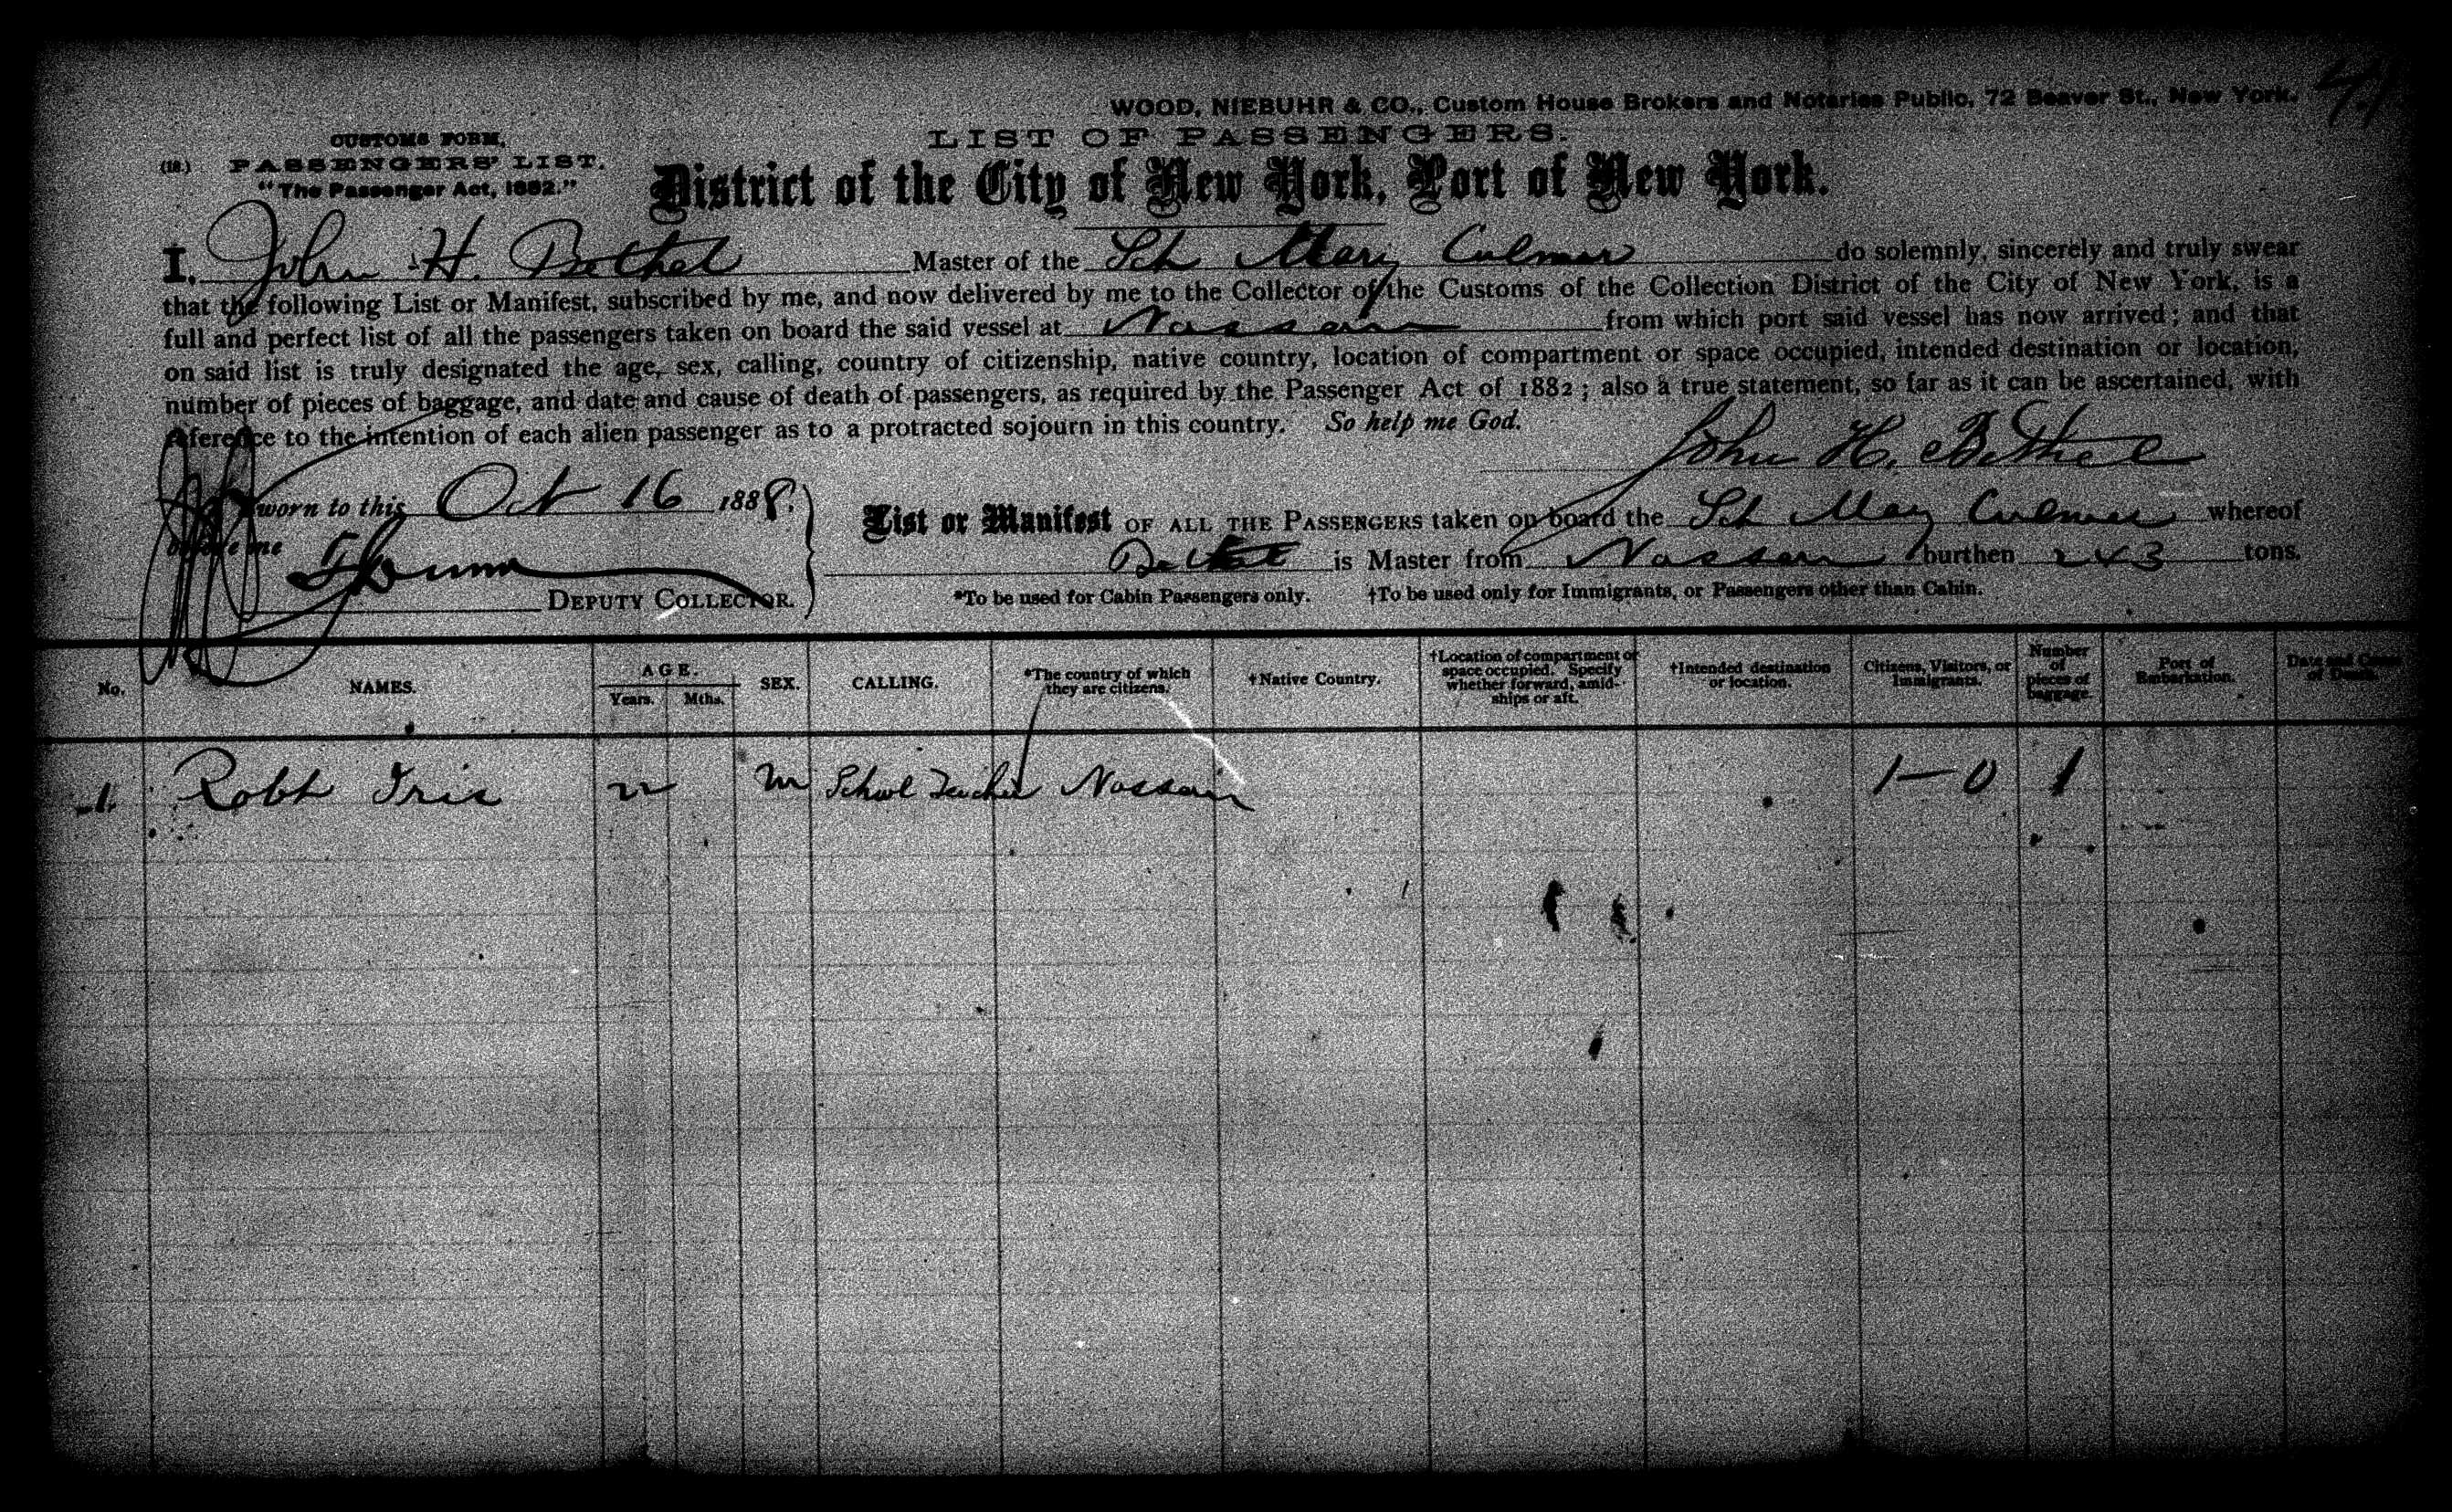 WOOD, NIEBUHR & CO., Custom House Brokers and Notaries Public, 72 Beaver St., New York.
CUSTOMS FORM,
LIST OF PASSENGERS.
(18.) PASSENGERS' LIST.
"The Passenger Act, 1882."
District of the City of New York, Port of New York.
I, John H. Bethel Master of the Sch Mary Culmer do solemnly, sincerely and truly swear
that the following List or Manifest, subscribed by me, and now delivered by me to the Collector of the Customs of the Collection District of the City of New York, is a
full and perfect list of all the passengers taken on board the said vessel at Nassau from which port said vessel has now arrived; and that
on said list is truly designated the age, sex, calling, country of citizenship, native country, location of compartment or space occupied, intended destination or location,
number of pieces of baggage, and date and cause of death of passengers, as required by the Passenger Act of 1882; also a true statement, so far as it can be ascertained, with
reference to the intention of each alien passenger as to a protracted sojourn in this country. So help me God.
John H. Bethel
Sworn to this Oct 16 1888.
List or Manifest OF ALL THE PASSENGERS taken on board the Sch Mary Culmer whereof
before me
Bethel is Master from Nassau burthen 243 tons.
DEPUTY COLLECTOR.
*To be used for Cabin Passengers only. †To be used only for Immigrants, or Passengers other than Cabin.
No. NAMES. AGE. Years. Mths. SEX. CALLING. *The country of which they are citizens. †Native Country. †Location of compartment or space occupied. Specify whether forward, amidships or aft. †Intended destination or location. Citizens, Visitors, or Immigrants. Number of pieces of baggage. Port of Embarkation. Date and Cause of Death.
1. Robt Iris 22 M School Teacher Nassau 1—0 1